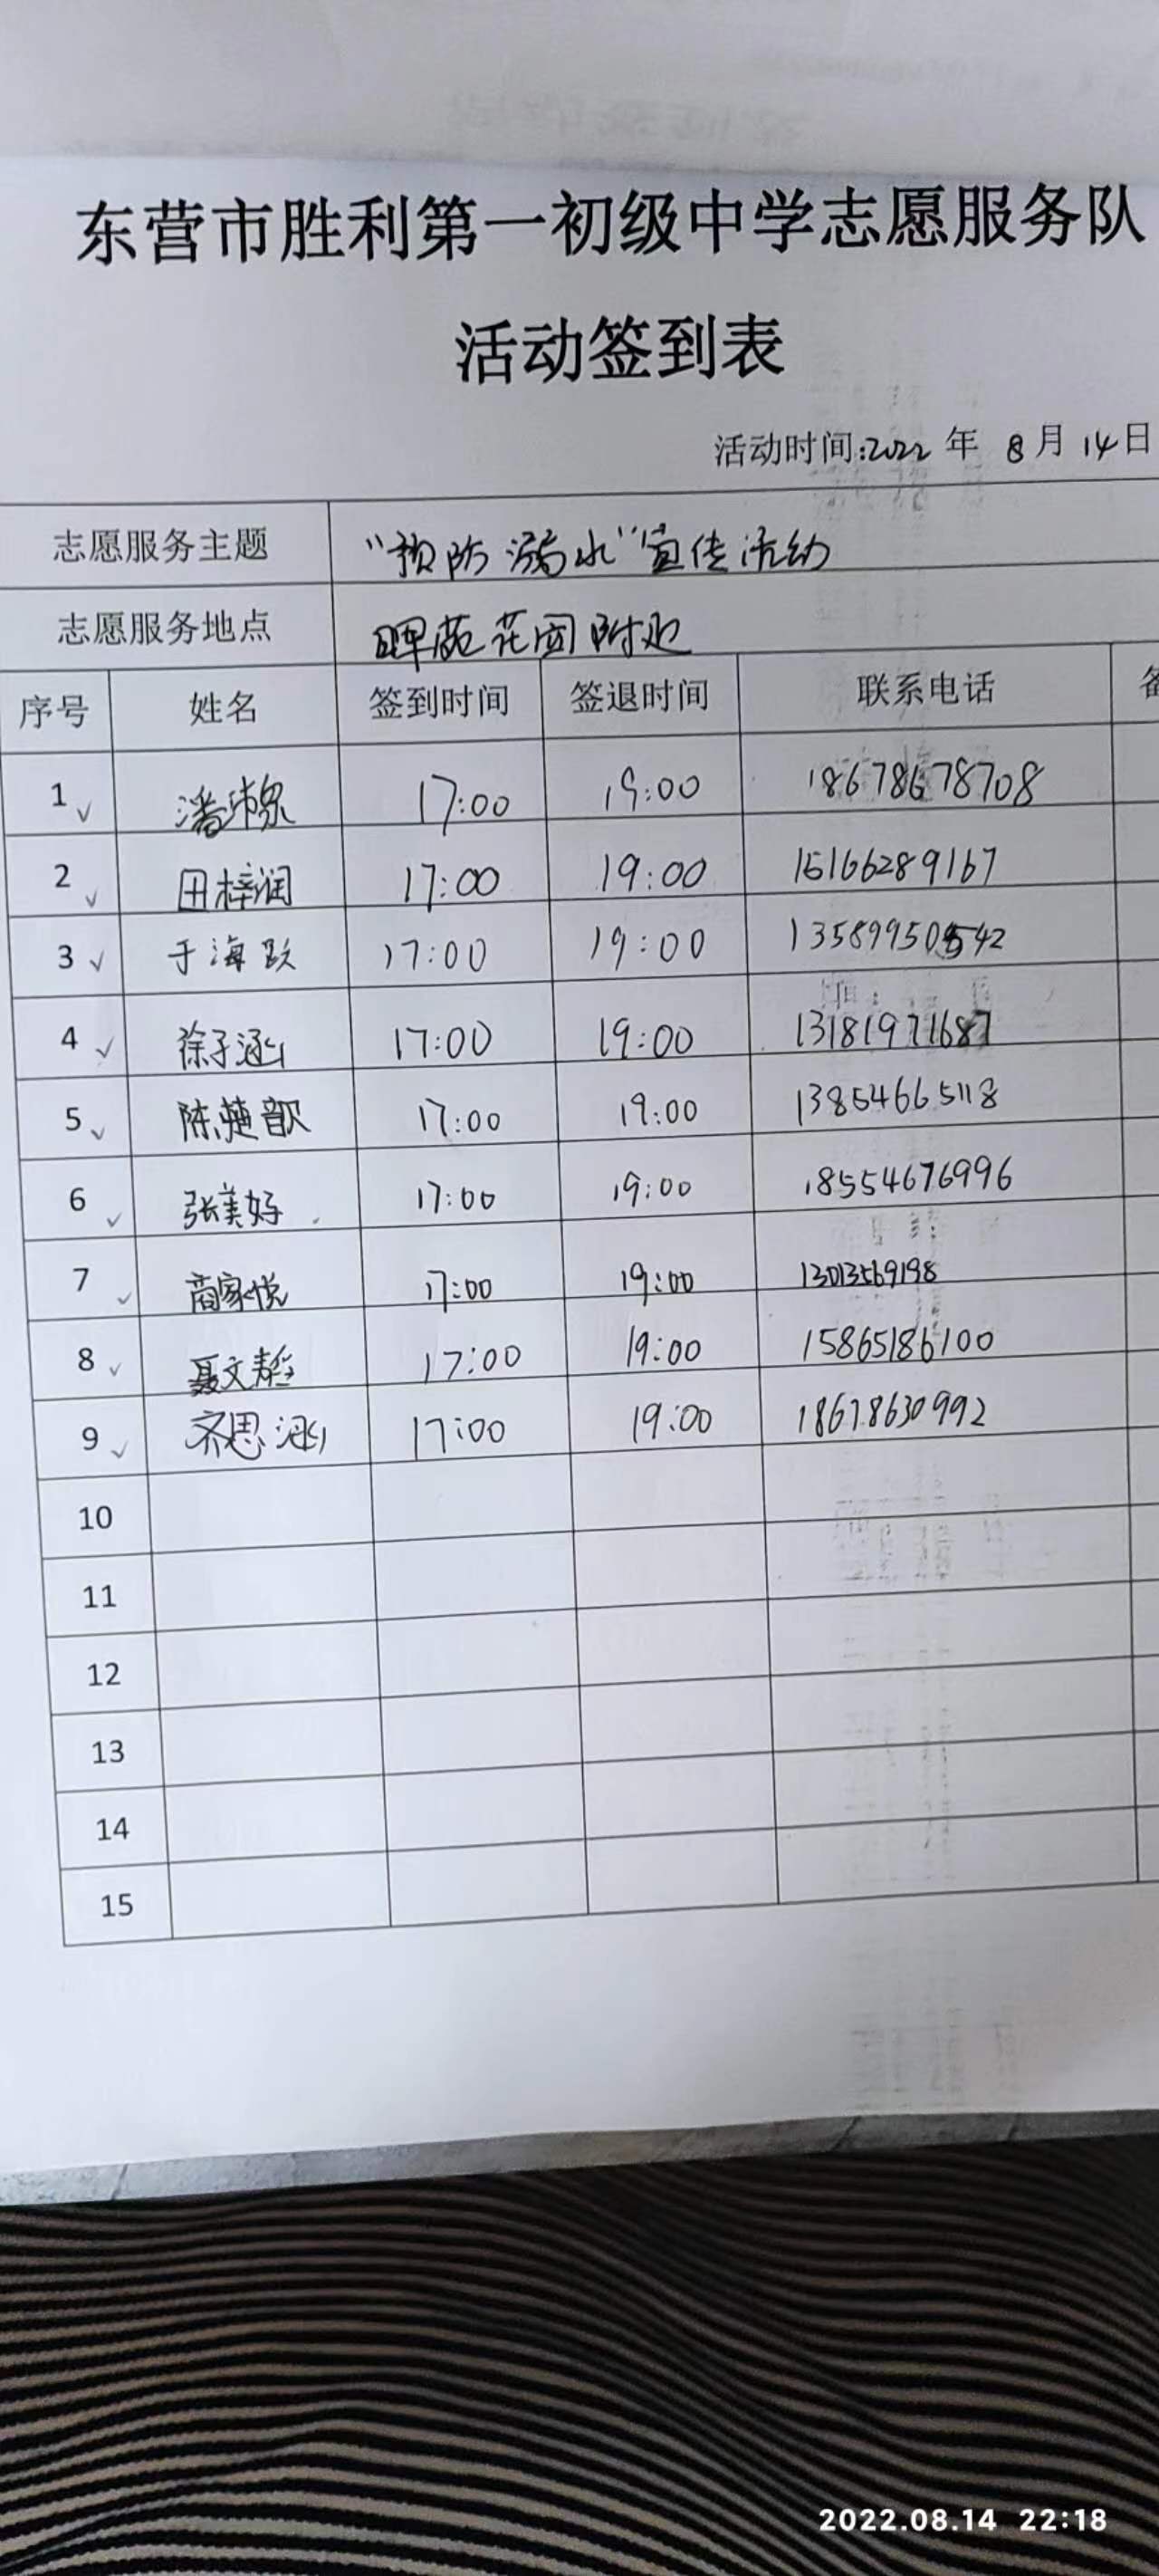 东营市胜利第一初级中学志愿服务队
活动签到表
活动时间:2022 年 8月 14日
志愿服务主题 “预防溺水”宣传活动
志愿服务地点 晖苑花园附近
序号 姓名 签到时间 签退时间 联系电话
1 ✓ 17:00 19:00 18678678708
2 ✓ 田梓润 17:00 19:00 15166289167
3 ✓ 于海跃 17:00 19:00 13589950542
4 ✓ 徐子涵 17:00 19:00 13181971687
5 ✓ 陈楚歆 17:00 19:00 13854665118
6 ✓ 张美好 17:00 19:00 18554676996
7 ✓ 商家悦 17:00 19:00 13013569198
8 ✓ 聂文韬 17:00 19:00 15865186100
9 ✓ 齐思涵 17:00 19:00 18678630992
10
11
12
13
14
15
2022.08.14 22:18